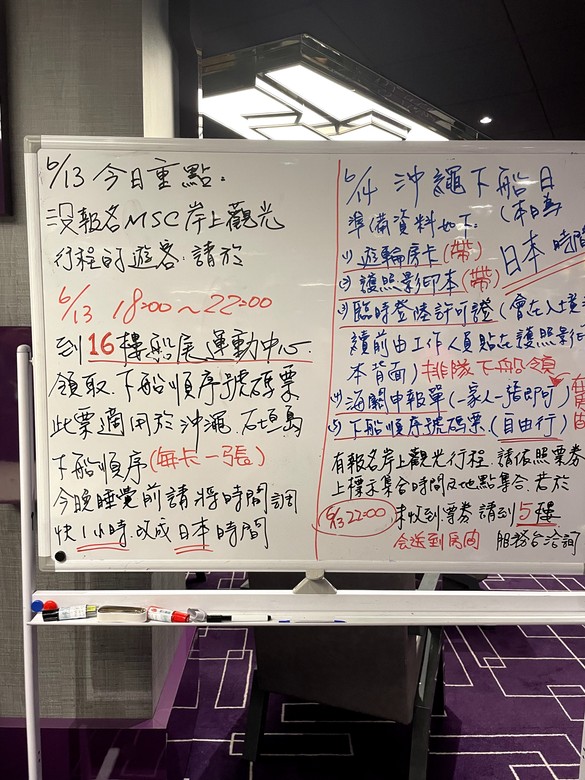 6/13 今日重點.
沒報名MSC岸上觀光
行程的遊客. 請於
6/13 18:00~22:00
到16樓船尾運動中心.
領取.下船順序號碼票
此票適用於沖繩. 石垣島
下船順序(每卡一張)
今晚睡覺前請將時間調
快1小時.改成日本時間
6/14 沖繩下船日
(本日為
日本時間
準備資料如下:
(1) 遊輪房卡(帶)
(2) 護照影印本(帶)
(3) 臨時登陸許可證(會在入境
續前由工作人員貼在護照影
本背面) 排隊下船領
(4) 海關申報單(一家人一張即可)
(5) 下船順序號碼票(自由行)
有報名岸上觀光行程.請依照票券
上標示集合時間及地點集合.若於
6/13 22:00 未收到票券請到5樓
會送到房間 服務台洽詢